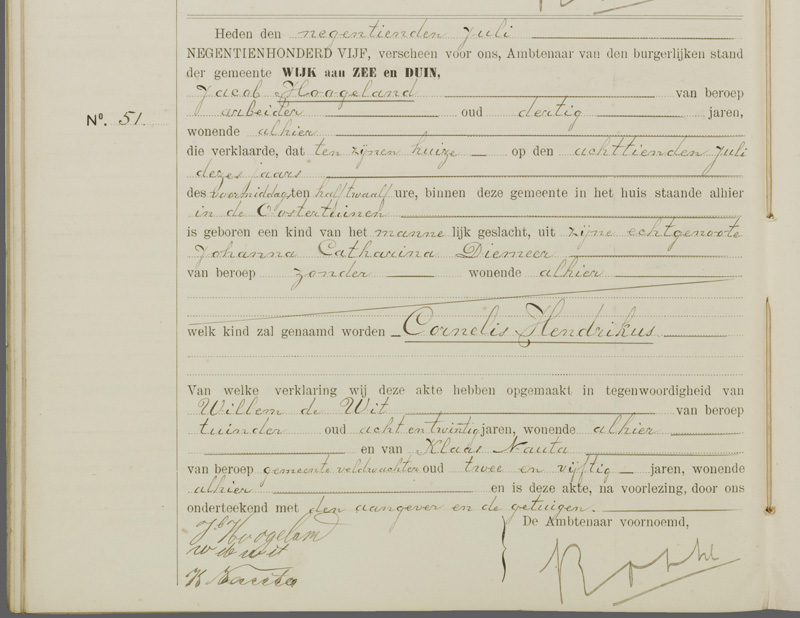 Heden den negentienden Juli
NEGENTIENHONDERD VIJF, verscheen voor ons, Ambtenaar van den burgerlijken stand
der gemeente WIJK aan ZEE en DUIN,
Jacob Hoogeland van beroep
arbeider oud dertig jaren,
No. 51.
wonende alhier
die verklaarde, dat ten zijnen huize op den achttienden Juli
dezes jaars
des voormiddags ten half twaalf ure, binnen deze gemeente in het huis staande alhier
in de Oostertuinen
is geboren een kind van het mannelijk geslacht, uit zijne echtgenoote
Johanna Catharina Diemeer
van beroep zonder wonende alhier
welk kind zal genaamd worden Cornelis Hendrikus
Van welke verklaring wij deze akte hebben opgemaakt in tegenwoordigheid van
Willem de Wit van beroep
tuinder oud acht en twintig jaren, wonende alhier
en van Klaas Nauta
van beroep gemeente veldwachter oud twee en vijftig jaren, wonende
alhier en is deze akte, na voorlezing, door ons
onderteekend met den aangever en de getuigen.
De Ambtenaar voornoemd,
J Hoogeland
W de Wit
K Nauta